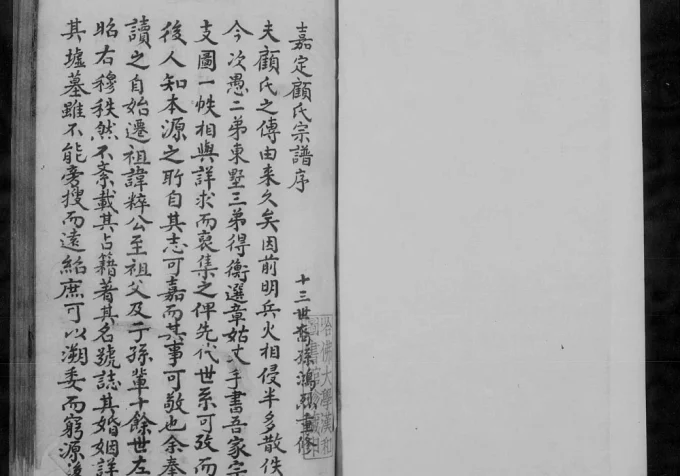 嘉定顧氏宗譜序
十三世裔孫鴻烈重修
夫顧氏之傳由来久矣因前明兵火相侵半多散佚
今次愚二弟東墅三弟得衡選章姑丈手書吾家宗
支圖一帙相與詳求而裒集之俾先代世系可攷而
後人知本源之所自其志可嘉而其事可敬也余奉
讀之自始遷祖諱粹公至祖父及子孫輩十餘世左
昭右穆秩然不紊載其占籍著其名號誌其婚姻詳
其墟墓雖不能旁搜而遠紹庶可以溯委而窮源
哈佛大學漢和
圖書館